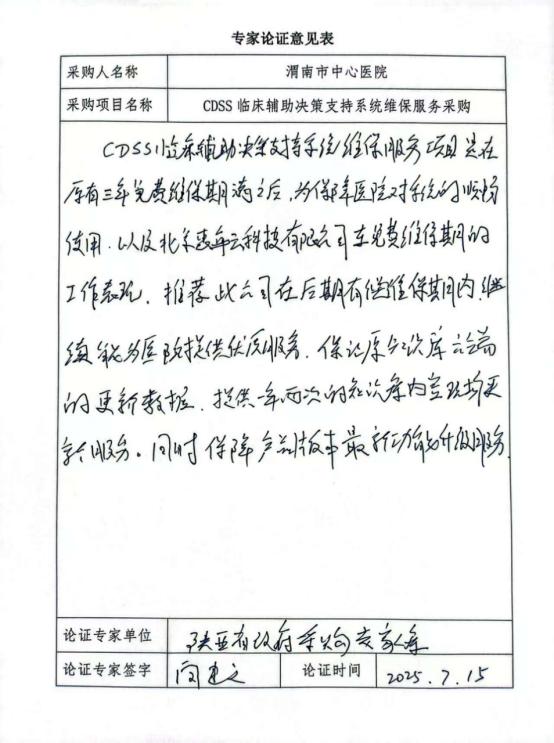 专家论证意见表
采购人名称 渭南市中心医院
采购项目名称 CDSS 临床辅助决策支持系统维保服务采购
CDSS临床辅助决策支持系统维保服务项目是在
原有三年免费维保期满之后,为保障医院对系统的顺畅
使用.以及北京惠每云科技有限公司在免费维保期的
工作表现,推荐此公司在后期有偿维保期内,继
续能为医院提供优质服务.保证原知识库云端
的更新数据.提供一年两次的知识库内容现场更
新服务。同时保障产品版本最新功能升级服务
论证专家单位 陕西省政府采购专家库
论证专家签字 建文 论证时间 2025.7.15